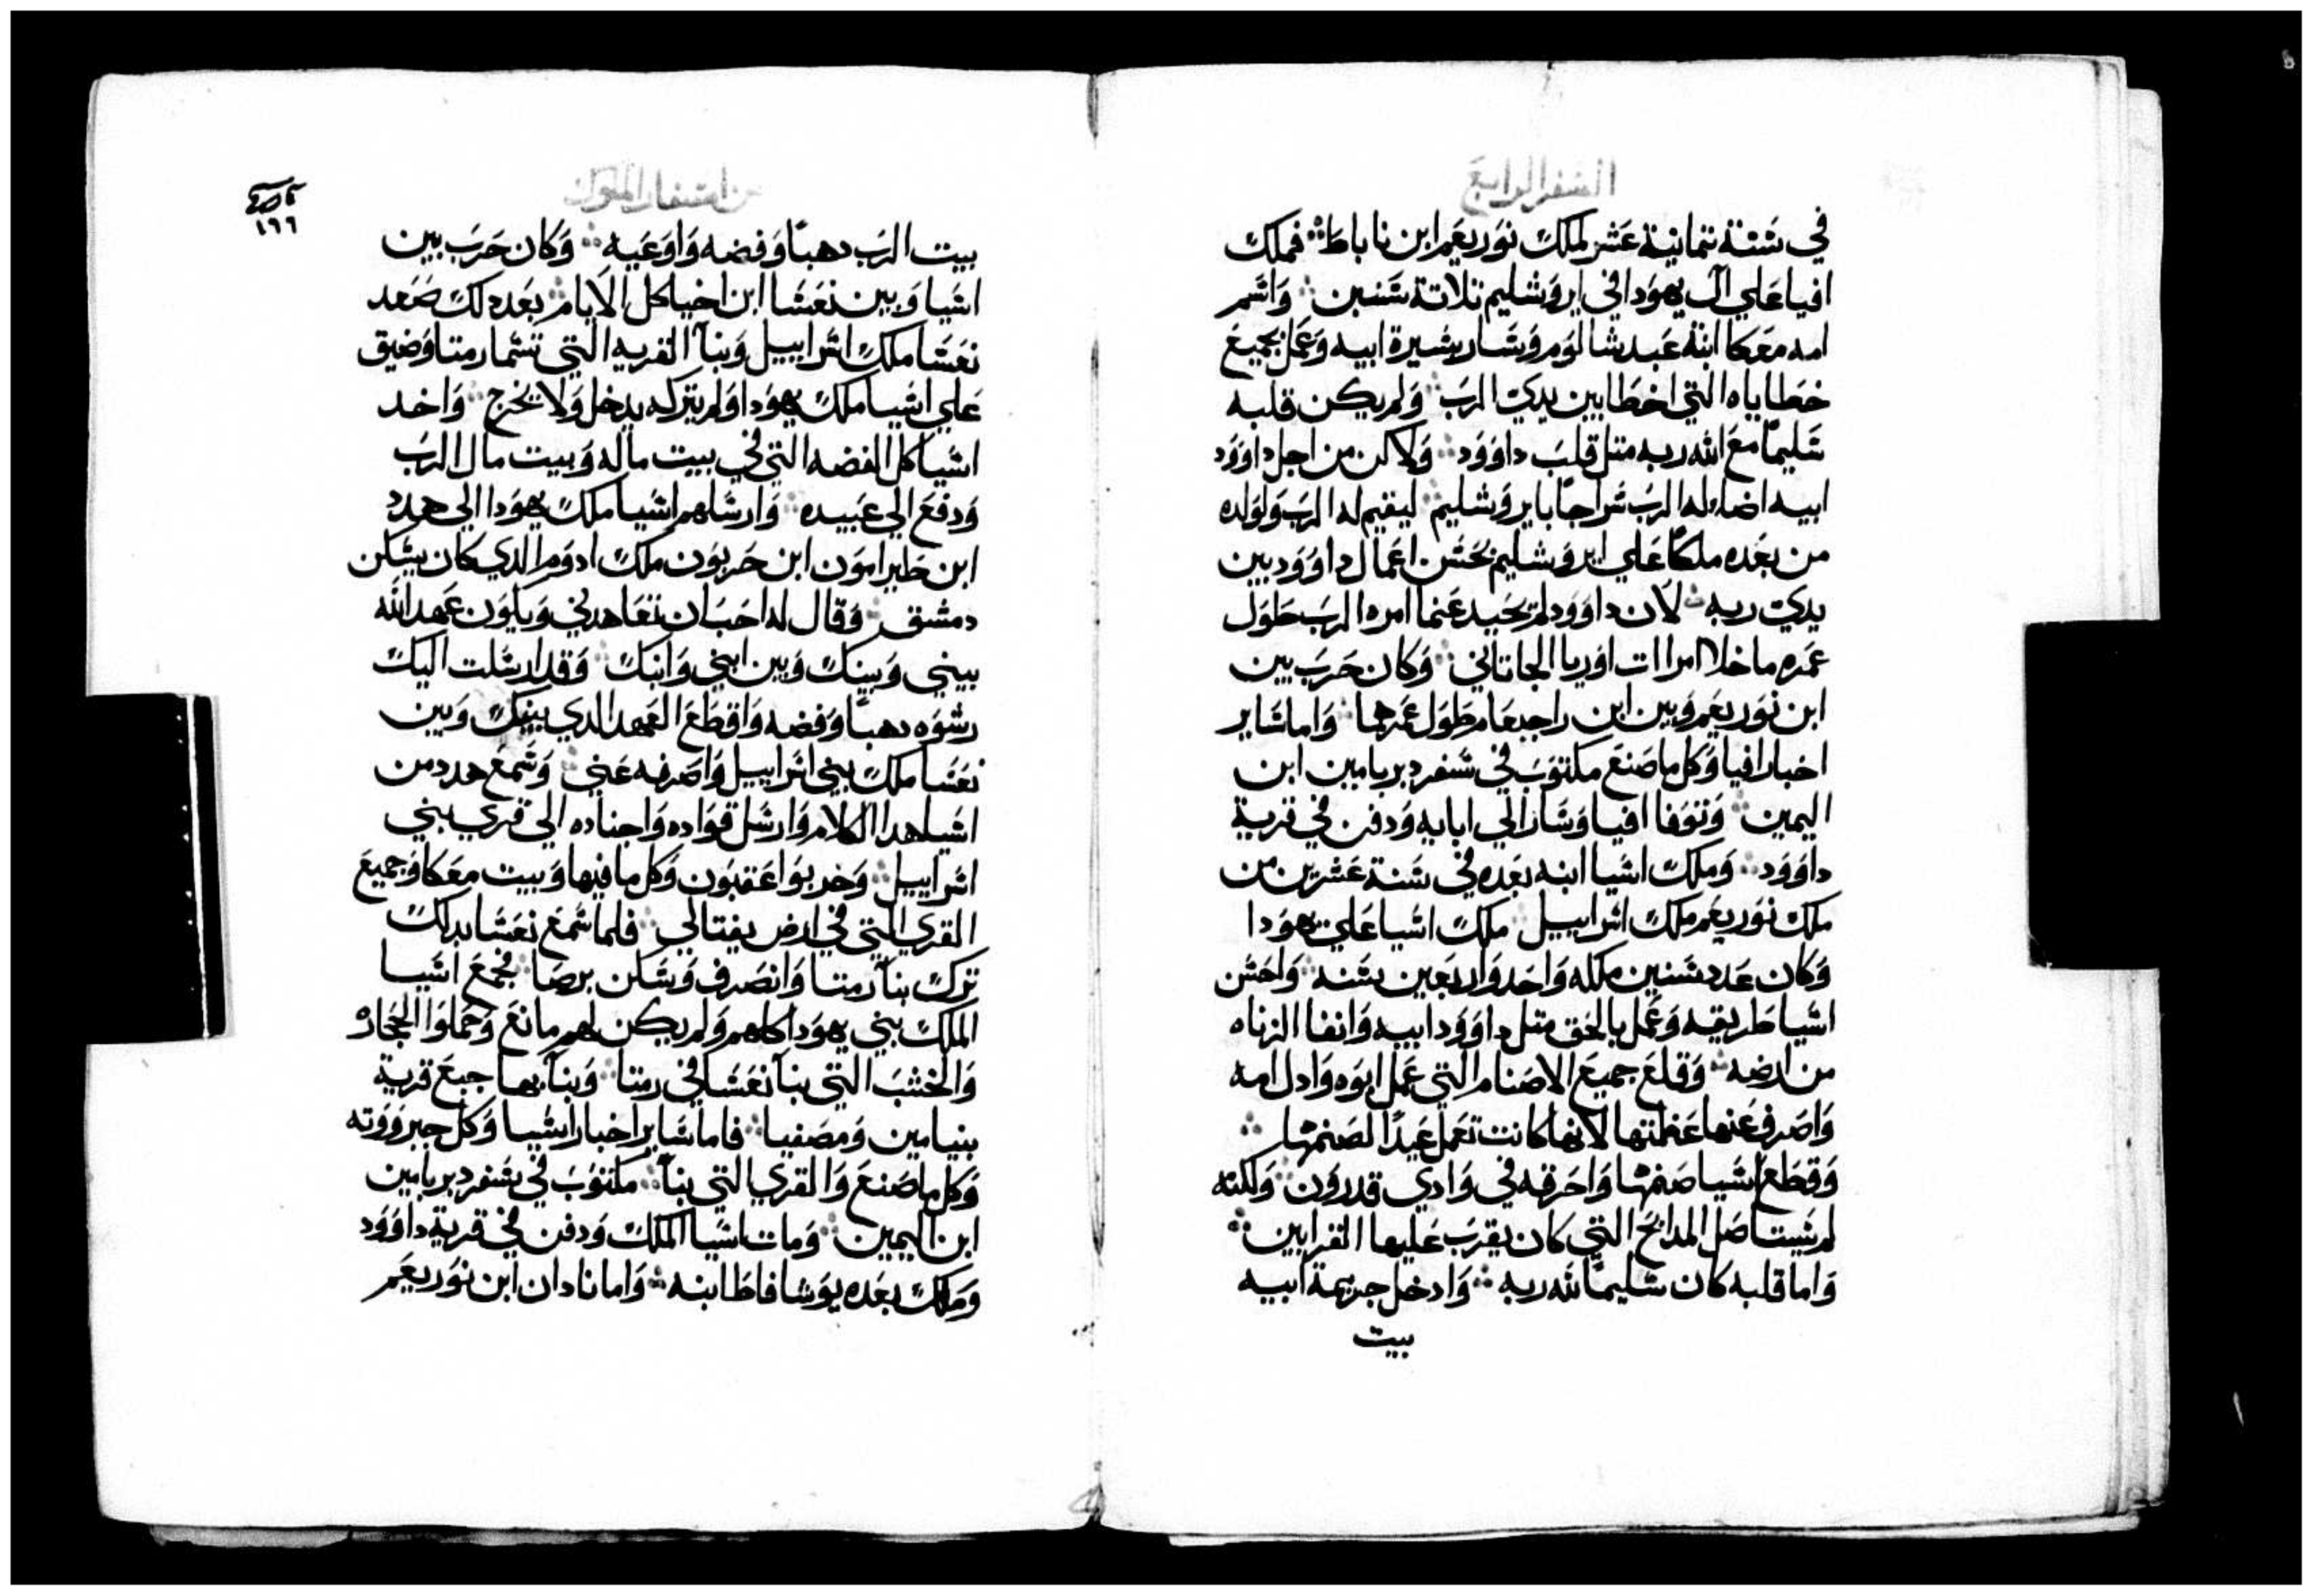 السفر الرابع
في سنة تمانية عشر لملك نوربعم ابن ناباط فملك
افيا علي آل يهودا في ايروشليم تلاتة سنين واسم
امه معكا ابنة عبد شالوم وسار بسيرة ابيه وعمل بجميع
خطاياه التي اخطا بين يدي الرب ولم يكن قلبه
سليمًا مع الله ربه متل قلب داوود ولاكن من اجل داوود
ابيه اضاء له الرب سراجًا بايروشليم ليقيم له الرب ولولده
من بعده ملكًا علي ايروشليم بحسن اعمال داوود بين
يدي ربه لان داوود لم يحيد عنما امره الرب طول
عمره ما خلا امراات اوريا الجاتاني وكان حرب بين
ابن نوربعم وبين ابن راجبعام طول عمرهما واما ساير
اخبار افيا وكل ما صنع مكتوب في سفر دبريامين ابن
اليمين وتوفا افيا وسار الي ابايه ودفن في قرية
داوود وملك اسيا ابنه بعده في سنة عشرين من
ملك نوربعم ملك اسراييل ملك اسيا علي يهودا
وكان عدد سنين ملكه واحد واربعين سنه واحسن
اسيا طريقه وعمل بالحق متل داوود ابيه وانفا الزناه
من ارضه وقلع جميع الاصنام التي عمل ابوه وادل امه
واصرف عنها عظمتها لانها كانت تعمل عيدًا لصنمها
وقطع اسيا صنمها واحرقه في وادي قدرون ولكنه
لم يستاصل المدابح التي كان يقرب عليها القرابين
واما قلبه كان سليمًا لله ربه وادخل جريمة ابيه
بيت
من اسفار الملوك
١٦٦
بيت الرب دهبًا وفضه واوعيه وكان حرب بين
اسيا وبين نعسا ابن اخيا كل الايام بعد دلك صعد
نعسا ملك اسراييل وبنا القريه التي تسما رمتا وضيق
علي اسيا ملك يهودا ولم يتركه يدخل ولا يخرج واخد
اسيا كل الفضه التي في بيت ماله وبيت مال الرب
ودفع الي عبيده وارسلهم اسيا ملك يهودا الي هدد
ابن طبرامون ابن حربون ملك ادوم الدي كان يسكن
دمشق وقال له احب ان تعاهدني ويكون عهد الله
بيني وبينك وبين ابني وابنك وقد ارسلت اليك
رشوه دهبًا وفضه واقطع العهد الدي بينك وبين
نعسا ملك بني اسراييل واصرفه عني وسمع هدد من
اسيا هدا الكلام وارسل قواده واجناده الي قري بني
اسراييل وخربوا عقبون وكل ما فيها وبيت معكا وجميع
القري التي في ارض يفتالي فلما سمع نعسا بدلك
ترك بنا رمتا وانصرف وسكن برصا فجمع اسيا
الملك بني يهودا كلهم ولم يكن لهم مانع وحملوا الحجاره
والخشب التي بنا نعسا في رمتا وبنا بها جبع قرية
بنيامين ومصفيا فاما ساير اخبار اسيا وكل جبرووته
وكل ما صنع والقري التي بنا مكتوب في سفر دبريامين
ابن اليمين ومات اسيا الملك ودفن في قرية داوود
وملك بعده يوشافاط ابنه واما نادان ابن نوربعم